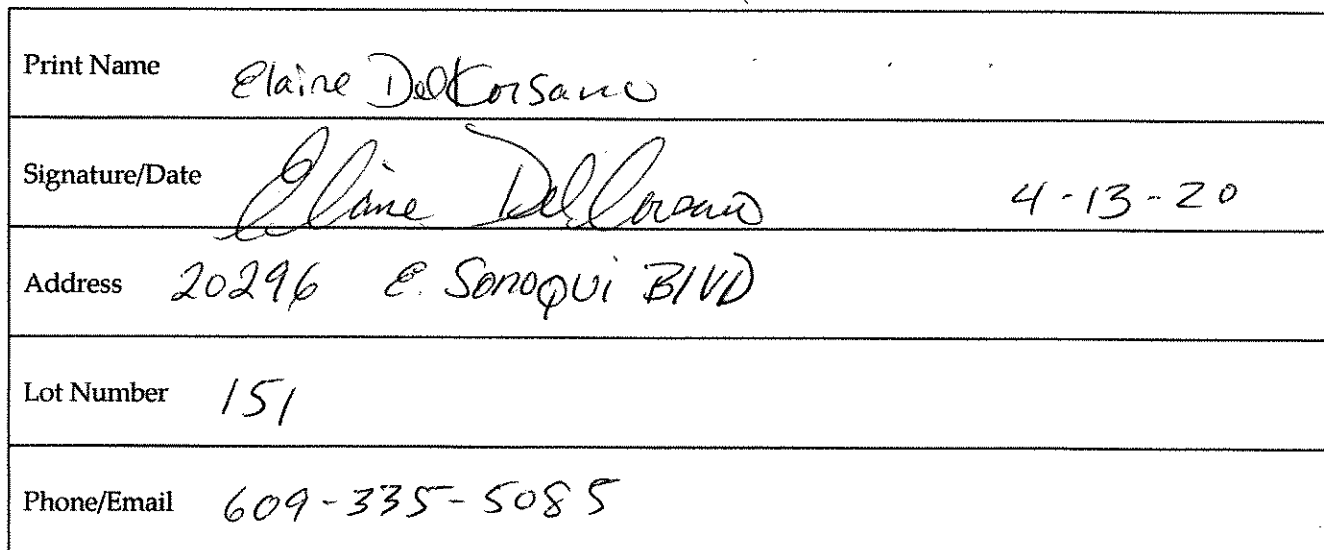 Print Name Elaine DelCorsano
Signature/Date Elaine DelCorsano 4-13-20
Address 20296 E. SonoQui BlVD
Lot Number 151
Phone/Email 609-335-5085